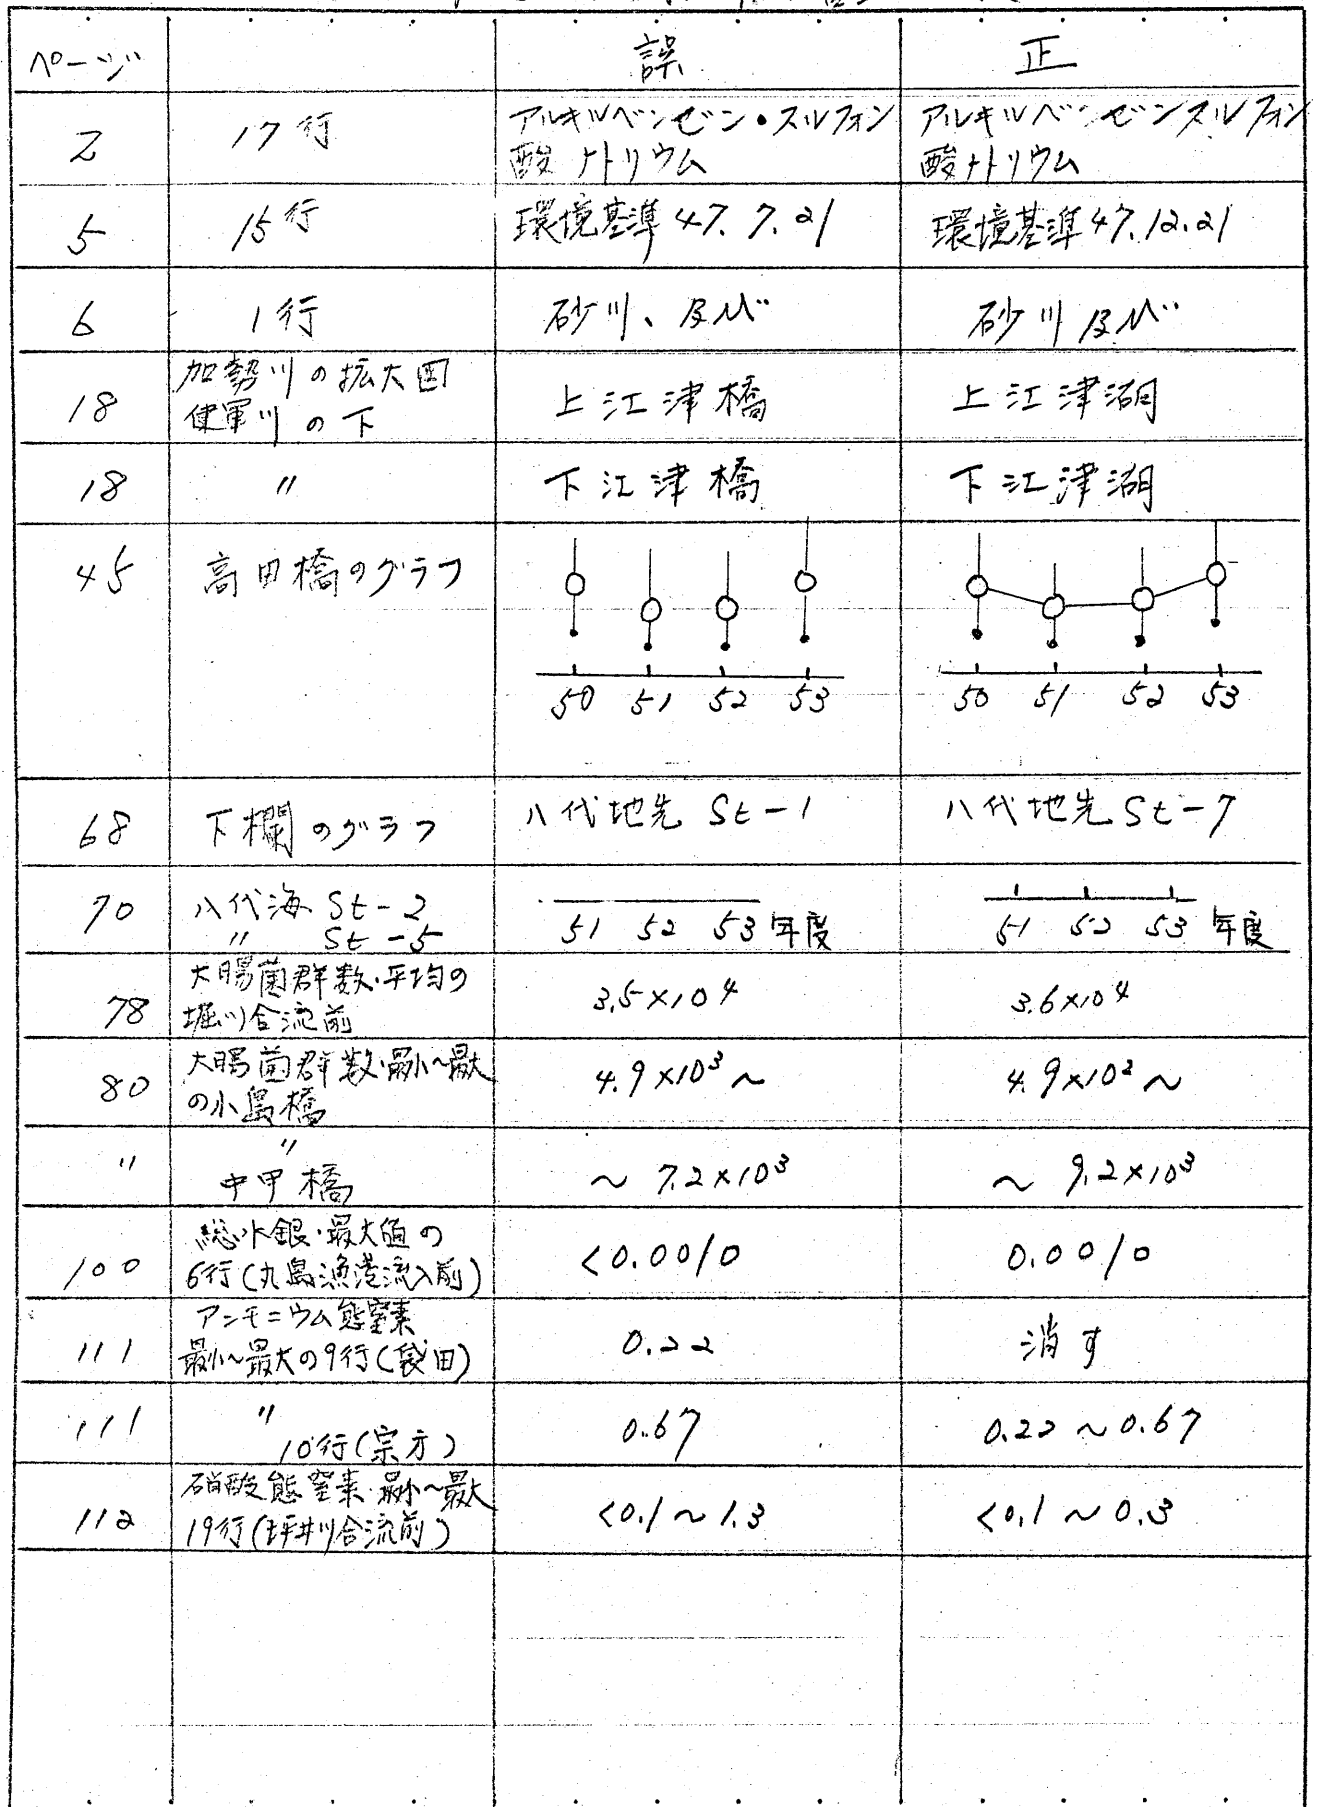 ページ 誤 正
2 17行 アルキルベンゼン・スルフォン アルキルベンゼンスルフォン
酸ナトリウム 酸ナトリウム
5 15行 環境基準47.7.21 環境基準47.12.21
6 1行 砂川、及び 砂川及び
加勢川の拡大図
18 健軍川の下 上江津橋 上江津湖
18 〃 下江津橋 下江津湖
45 高田橋のグラフ
50 51 52 53 50 51 52 53
68 下欄のグラフ 八代地先 St-1 八代地先 St-7
70 八代海 St-2
〃 St-5 51 52 53 年度 51 52 53 年度
大腸菌群数・平均の
78 堀川合流前 3.5×10⁴ 3.6×10⁴
大腸菌群数・最小～最大
80 の小島橋 4.9×10³～ 4.9×10²～
〃 〃
中甲橋 ～7.2×10³ ～9.2×10³
総水銀・最大値の
100 6行(丸島漁港流入前) <0.0010 0.0010
アンモニウム態窒素
111 最小～最大の9行(袋田) 0.22 消す
111 〃
10行(宗方) 0.67 0.22～0.67
硝酸態窒素・最小～最大
112 19行(坪井川合流前) <0.1～1.3 <0.1～0.3